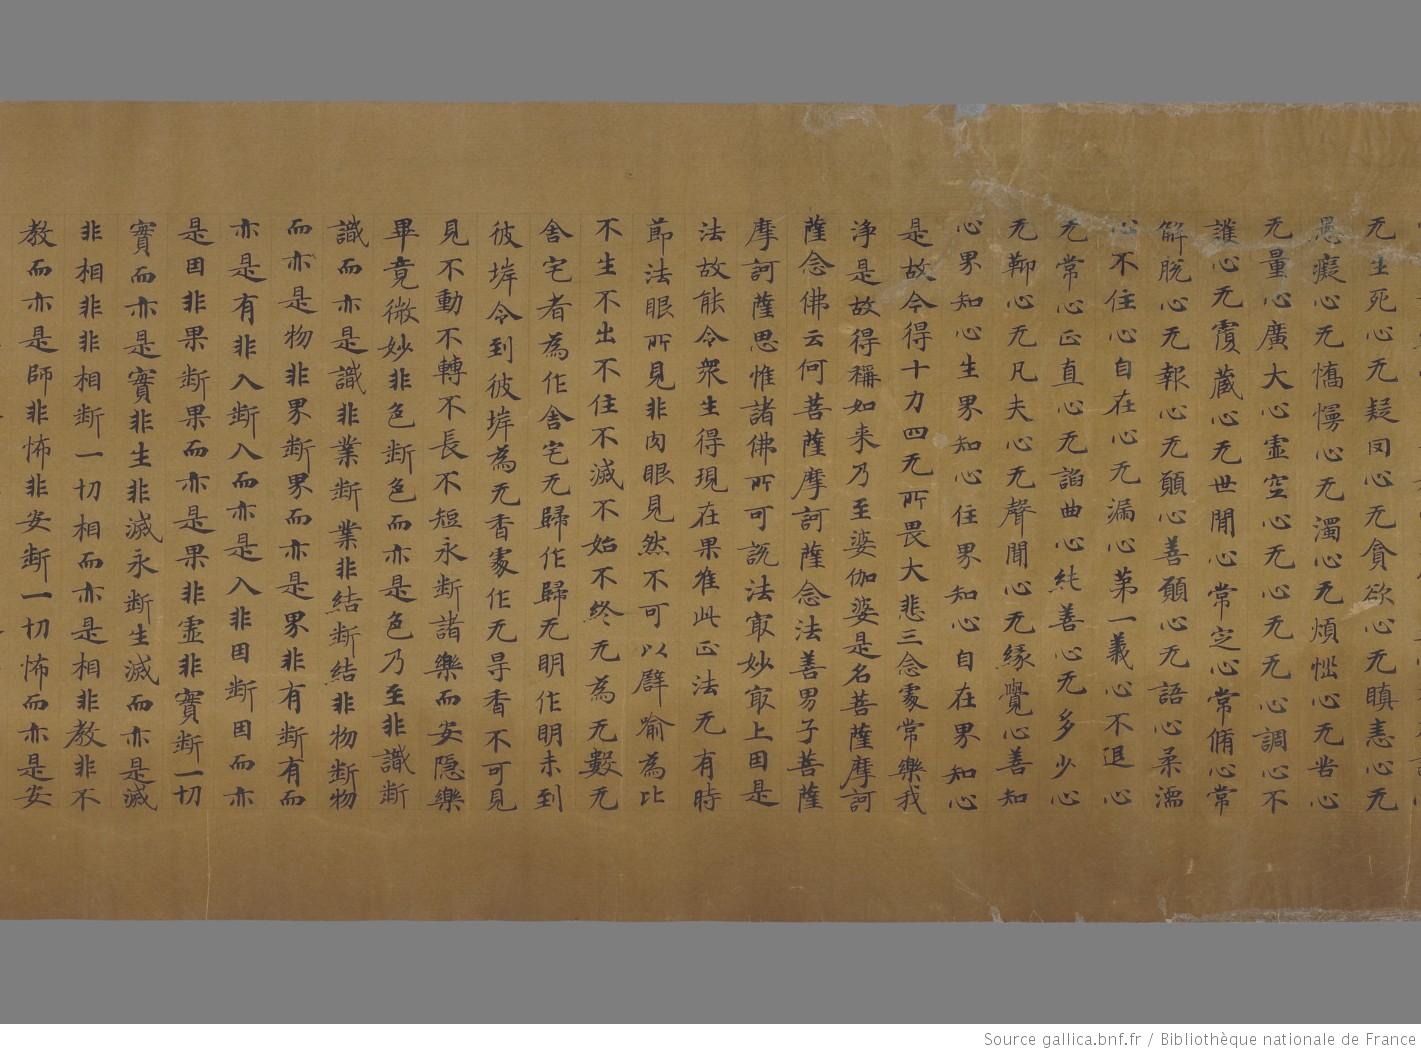 无生死心无疑网心无貪欲心无瞋恚心无
愚癡心无憍慢心无濁心无煩惱心无苦心
无量心廣大心虛空心无心无无心調心不
護心无覆藏心无世閒心常定心常脩心常
解脫心无報心无願心善願心无語心柔濡
心不住心自在心无漏心第一義心不退心
无常心正直心无諂曲心純善心无多少心
无鞕心无凡夫心无聲聞心无緣覺心善知
心界知心生界知心住界知心自在界知心
是故今得十力四无所畏大悲三念處常樂我
淨是故得稱如来乃至婆伽婆是名菩薩摩訶
薩念佛云何菩薩摩訶薩念法善男子菩薩
摩訶薩思惟諸佛所可說法冣妙冣上因是
法故能令衆生得現在果唯此正法无有時
節法眼所見非肉眼見然不可以辟喻為比
不生不出不住不滅不始不終无為无數无
舍宅者為作舍宅无歸作歸无明作明未到
彼岸令到彼岸為无香處作无㝵香不可見
見不動不轉不長不短永断諸樂而安隱樂
畢竟微妙非色断色而亦是色乃至非識断
識而亦是識非業断業非結断結非物断物
而亦是物非界断界而亦是界非有断有而
亦是有非入断入而亦是入非因断因而亦
是因非果断果而亦是果非虛非實断一切
實而亦是實非生非滅永断生滅而亦是滅
非相非非相断一切相而亦是相非教非不
教而亦是師非怖非安断一切怖而亦是安